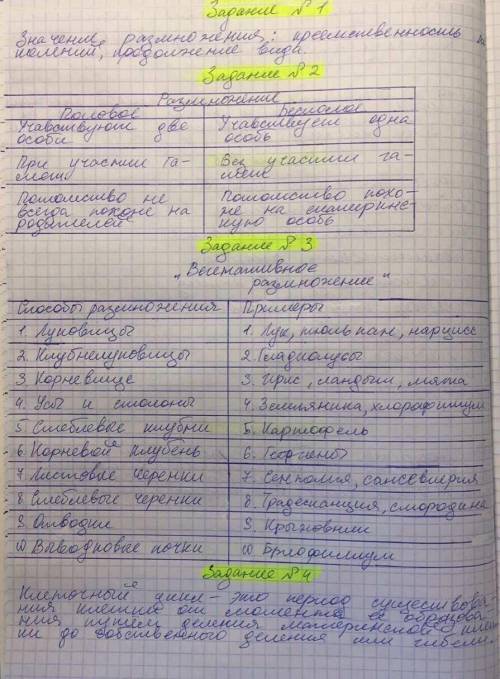 Задание №1
Значение размножения: преемственность
поколений, продолжение вида.
Задание №2
Размножение
Половое Бесполое
Учавствуют две Учавствует одна
особи особь
При участии га- Без участия га-
мет мет
Потомство не Потомство похо-
всегда похоже на же на материнс-
родителей кую особь
Задание №3
"Вегетативное
размножение"
Способы размножения Примеры
1. Луковицы 1. Лук, тюльпан, нарцисс
2. Клубнелуковицы 2. Гладиолусы
3. Корневище 3. Ирис, ландыш, мята
4. Усы и столоны 4. Земляника, хлорофитум
5. Стеблевые клубни 5. Картофель
6. Корневой клубень 6. Георгины
7. Листовые черенки 7. Сенполия, сансевиерия
8. Стеблевые черенки 8. Традесканция, смородина
9. Отводки 9. Крыжовник
10 Выводковые почки 10 Бриофиллум
Задание №4
Клеточный цикл - это период существова-
ния клетки от момента её образова-
ния путём деления материнской клет
ки до собственного деления или гибели